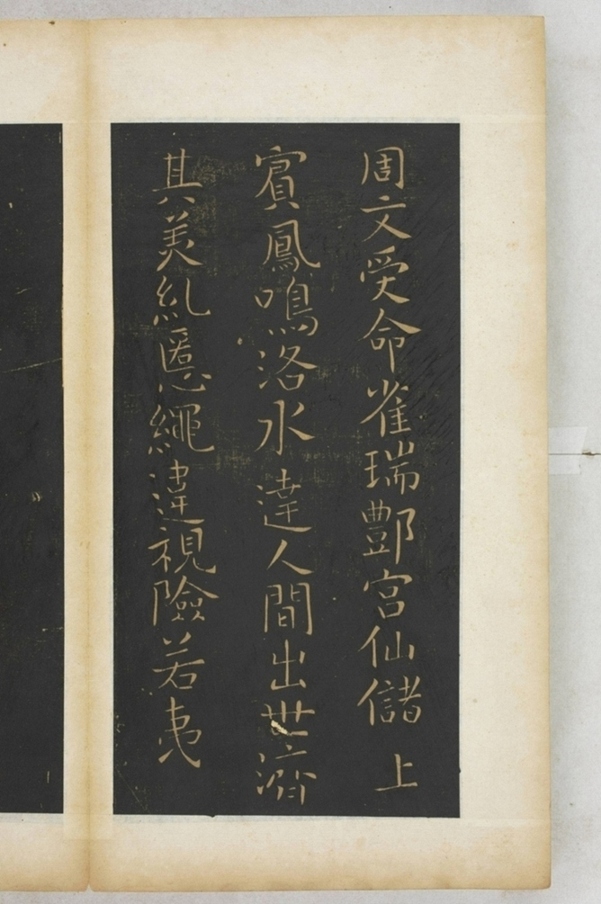 周文受命雀瑞酆宮仙儲上
賓鳳鳴洛水達人間出世濟
其美糺慝繩違視險若夷